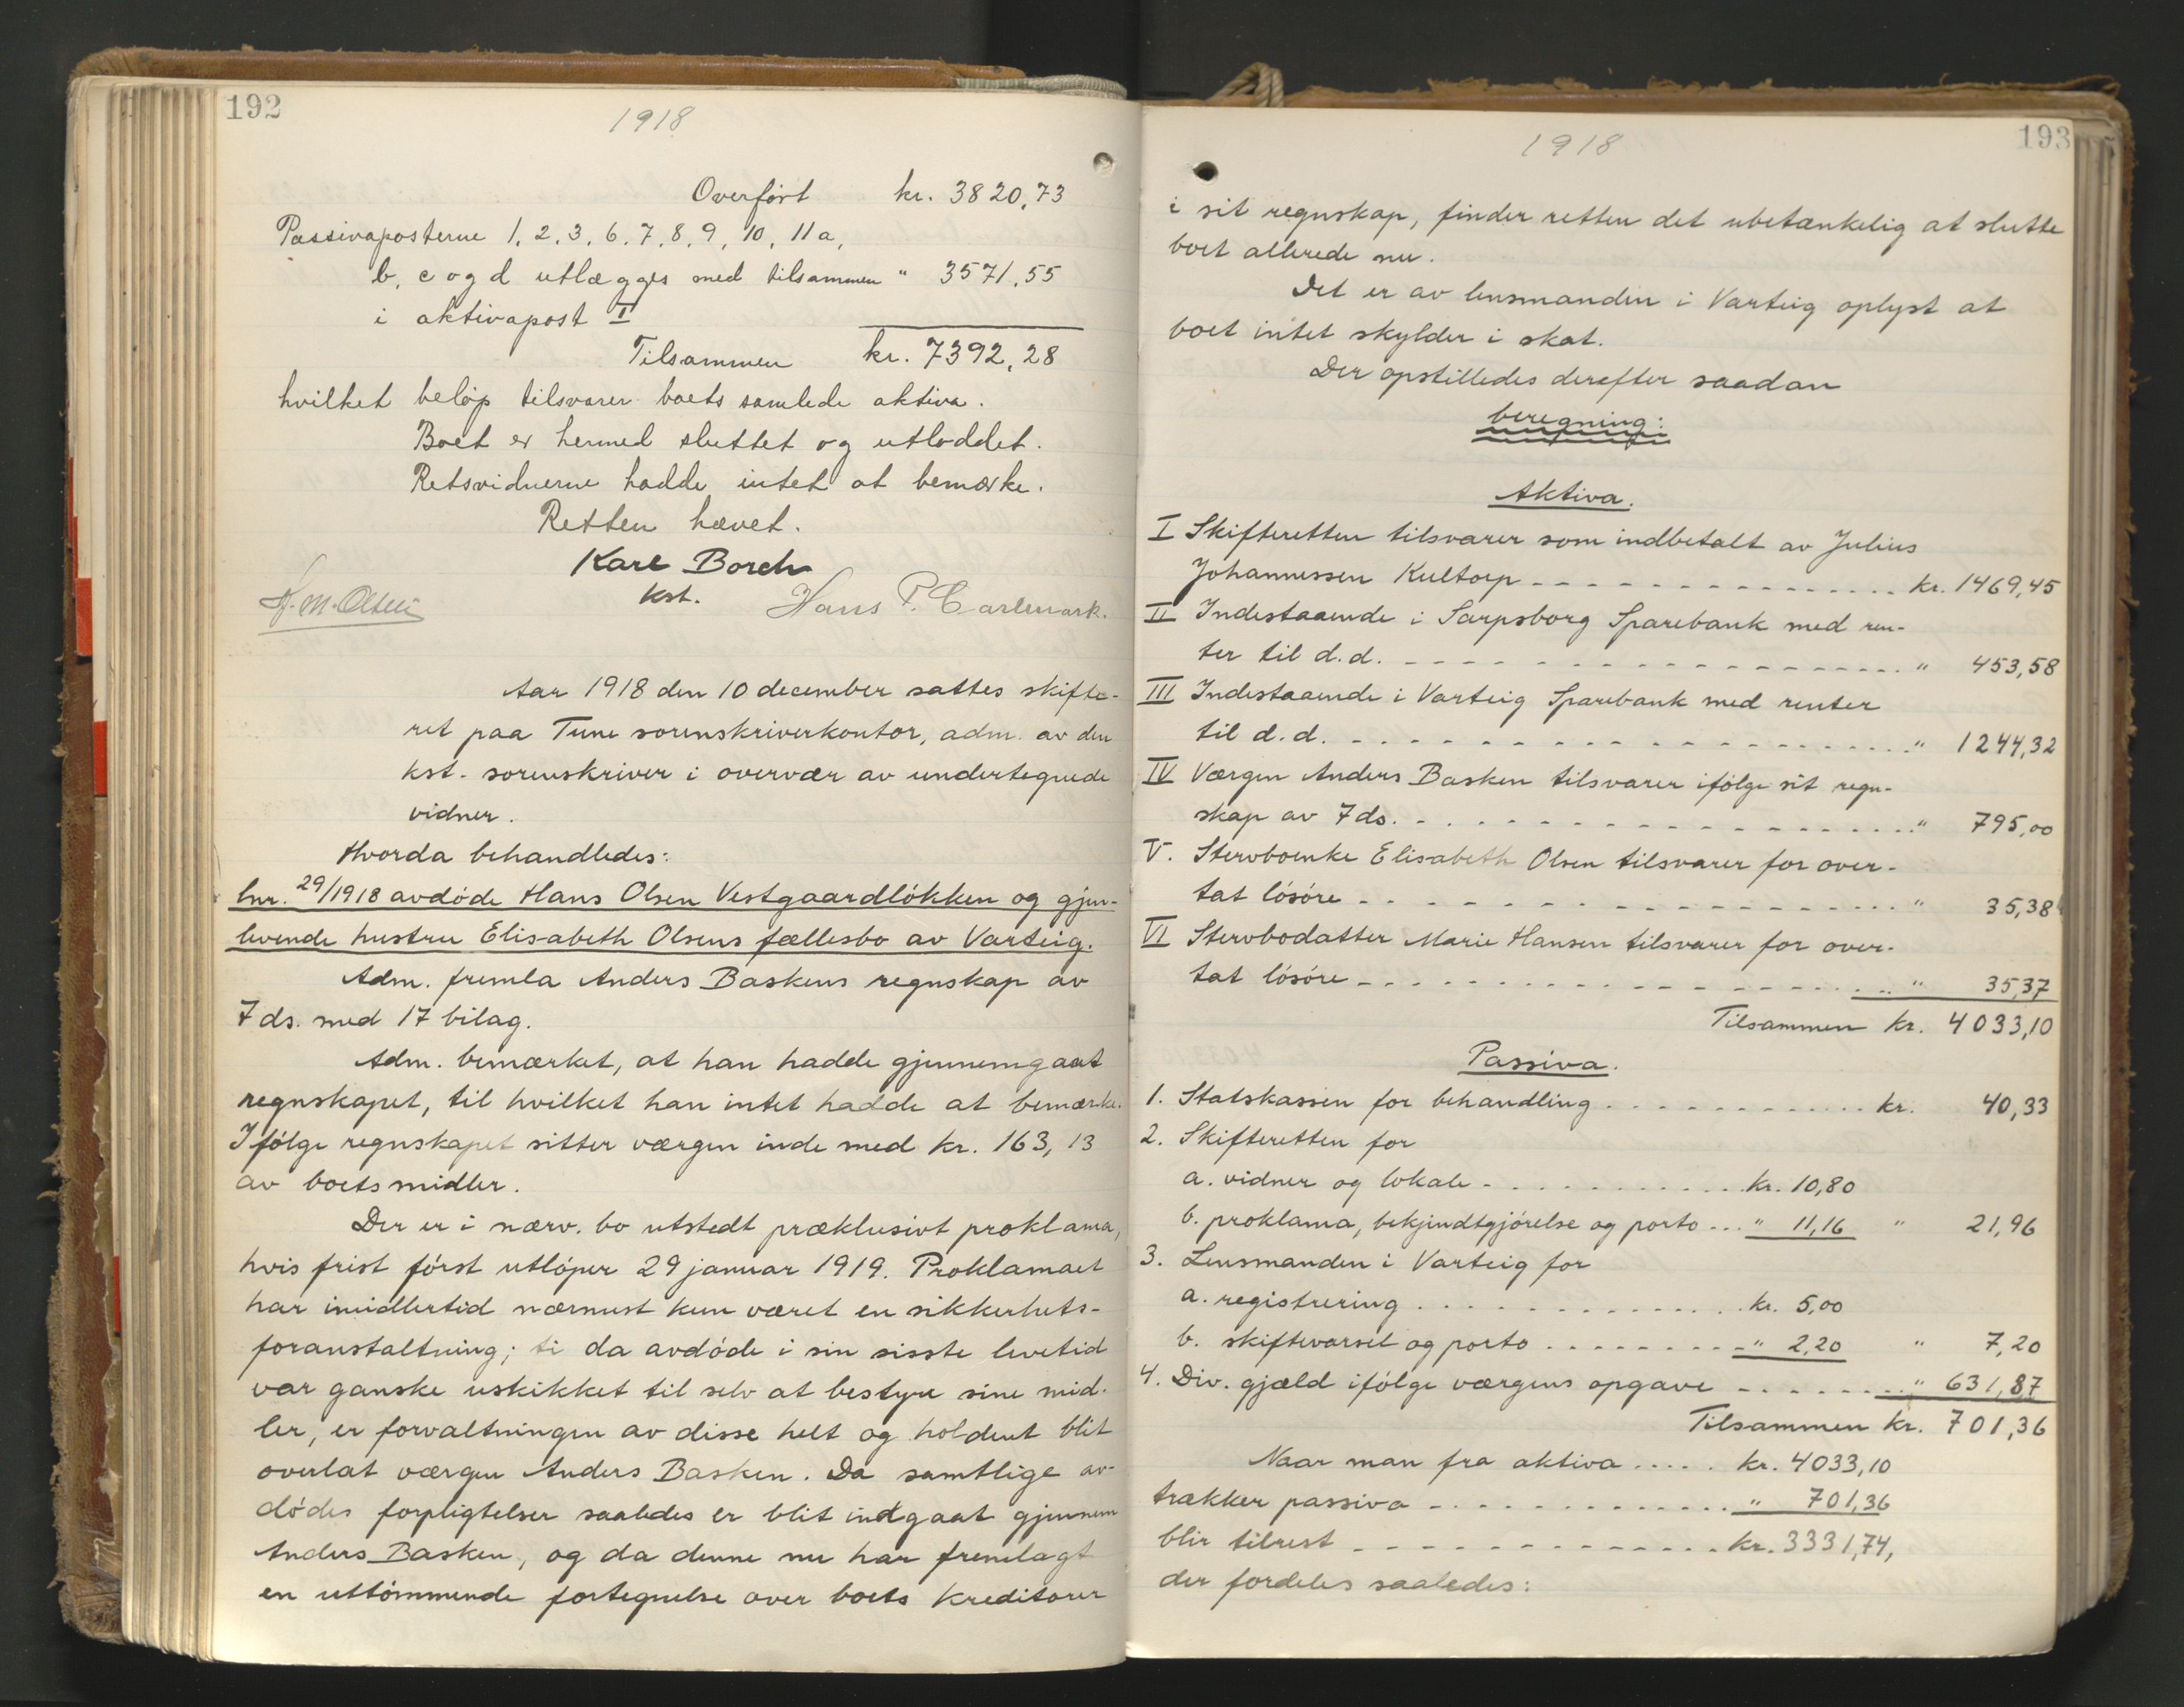 192
1918
Overført kr. 3820,73
Passivaposterne 1, 2, 3, 6, 7, 8, 9, 10, 11 a,
b, c og d utlægges med tilsammen " 3571,55
i aktivapost I
Tilsammen kr. 7392,28
hvilket beløp tilsvarer boets samlede aktiva.
Boet er hermed sluttet og utloddet.
Retsvidnerne hadde intet at bemærke.
Retten hævet.
Karl Borch
kst.
H. M. Olsen
Hans P. Carlmark.
Aar 1918 den 10 december sattes skifte-
ret paa Tune sorenskriverkontor, adm. av den
kst. sorenskriver i overvær av undertegnede
vidner.
Hvorda behandledes:
lnr. 29/1918 avdøde Hans Olsen Vestgaardløkken og gjen-
levende hustru Elisabeth Olsens fællesbo av Varteig.
Adm. fremla Anders Baskens regnskap av
7 ds. med 17 bilag.
Adm. bemærket, at han hadde gjennemgaat
regnskapet, til hvilket han intet hadde at bemærke.
Ifølge regnskapet sitter værgen inde med kr. 163,13
av boets midler.
Der er i nærv. bo utstedt præklusivt proklama,
hvis frist først utløper 29 januar 1919. Proklamaet
har imidlertid nærmest kun været en sikkerhets-
foranstaltning; ti da avdøde i sin sisste levetid
var ganske uskikket til selv at bestyre sine mid-
ler, er forvaltningen av disse helt og holdent blit
overlat værgen Anders Basken. Da samtlige av-
dødes forpligtelser saaledes er blit indgaat gjennem
Anders Basken, og da denne nu har fremlagt
en uttømmende fortegnelse over boets kreditorer
193
1918
i sit regnskap, finder retten det ubetænkelig at slutte
boet allerede nu.
Det er av lensmanden i Varteig oplyst at
boet intet skylder i skat.
Der opstilledes derefter saadan
beregning:
Aktiva.
I Skifteretten tilsvarer som indbetalt av Julius
Johannessen Kultorp kr. 1469,45
II Indestaaende i Sarpsborg Sparebank med ren-
ter til d.d. " 453,58
III Indestaaende i Varteig Sparebank med renter
til d.d. " 1244,32
IV Værgen Anders Basken tilsvarer ifølge sit regn-
skap av 7 ds. " 795,00
V. Stervboenke Elisabeth Olsen tilsvarer for over-
tat løsøre " 35,38
VI Stervbodatter Marie Hansen tilsvarer for over-
tat løsøre " 35,37
Tilsammen kr. 4033,10
Passiva.
1. Statskassen for behandling kr. 40,33
2. Skifteretten for
a. vidner og lokale kr. 10,80
b. proklama, bekjendtgjørelse og porto " 11,16 " 21,96
3. Lensmanden i Varteig for
a. registrering kr. 5,00
b. skiftevarsel og porto " 2,20 " 7,20
4. Div. gjæld ifølge værgens opgave " 631,87
Tilsammen kr. 701,36
Naar man fra aktiva kr. 4033,10
trækker passiva " 701,36
blir tilrest kr. 3331,74,
der fordeles saaledes: